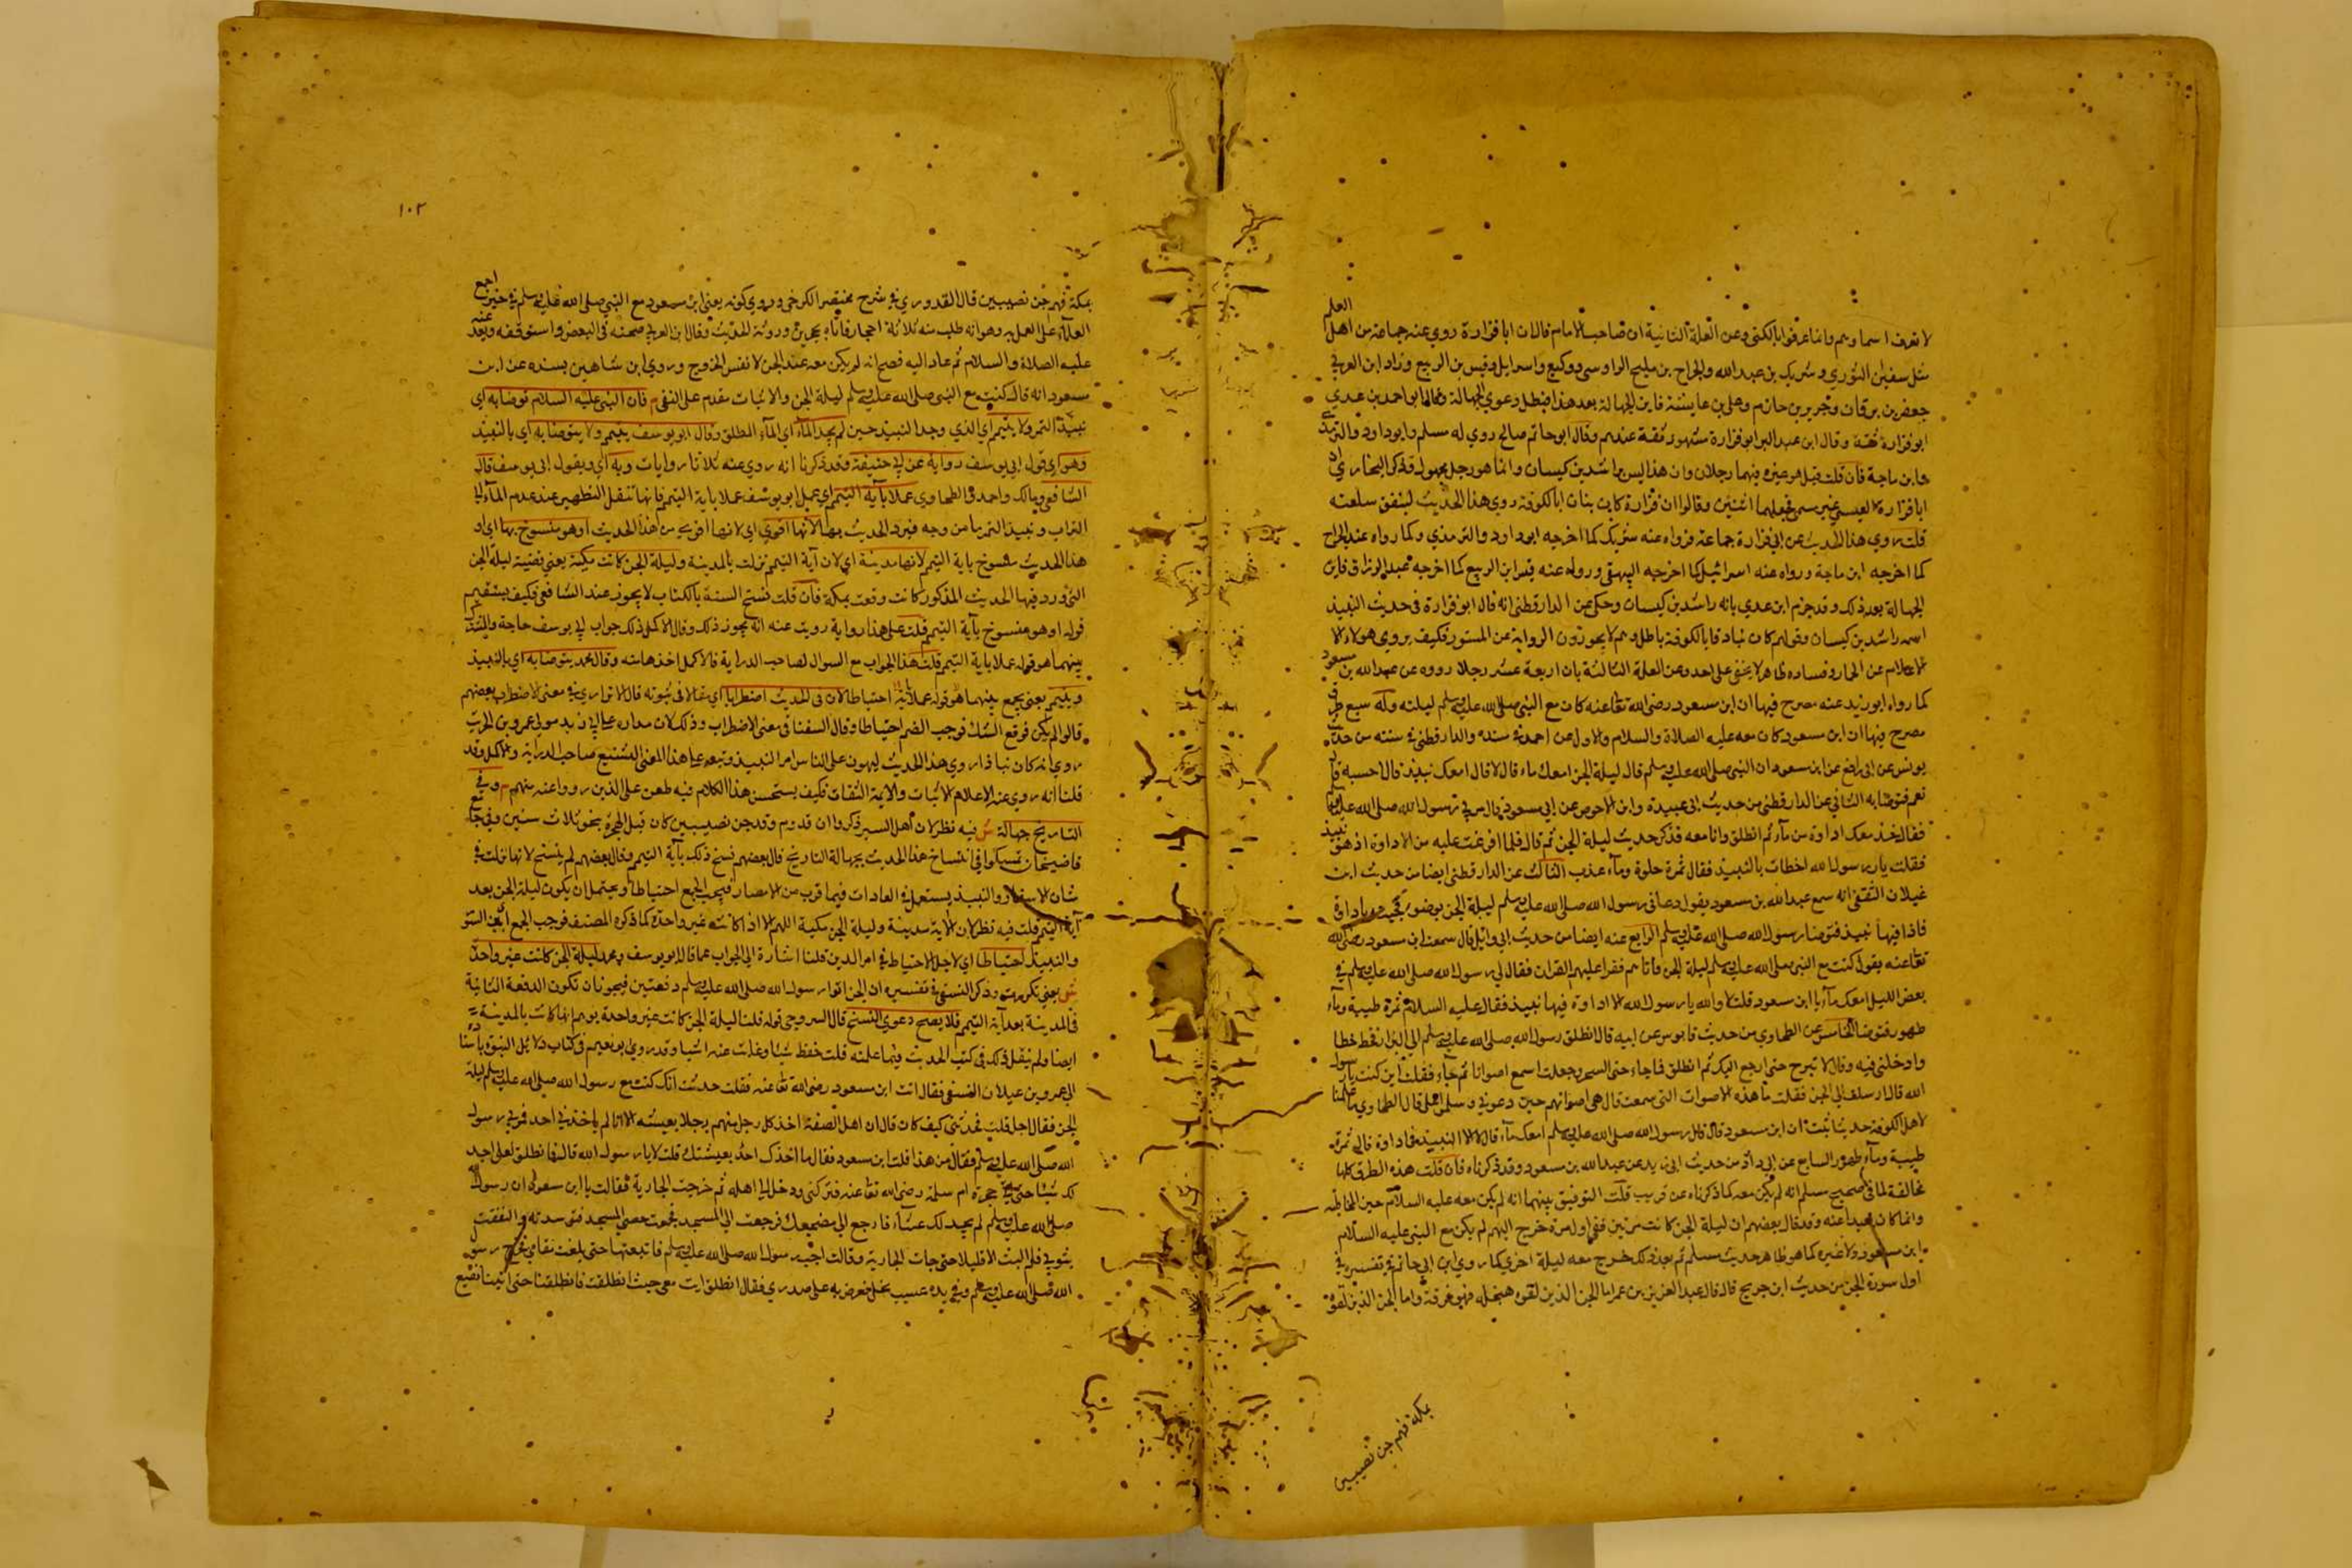 لا نعرف اسماوهم وانما عرفوا بالكنى وعن العلة الثانية ان صاحب الامام قال ان ابا فزارة روي عنه جماعة من اهل العلم
مثل سفيان الثوري وشريك بن عبد الله والجراح بن مليح الرواسي ووكيع واسرايل وقيس بن الربيع وزاد ابن العربي
جعفر بن برقان وجرير بن حازم وعلي بن عابس فاين الجهالة بعد هذا فبطل دعوى الجهالة وقال ابو احمد بن عدي
ابو فزارة ثقة وقال ابن عبد البر ابو فزارة مشهور ثقة عندهم وقال ابو حاتم صالح روي له مسلم وابو داود والترمذي
وابن ماجة فان قلت قيل هو غيره فيهما رجلان وان هذا ليس براشد بن كيسان وانما هو رجل مجهول قد ذكر البخاري ان
ابا فزارة العبسي غير مسمى فجعلهما اثنين وقالوا ان فزارة كان نباذا بالكوفة روي هذا الحديث لينفق سلعته
قلت روي هذا الحديث عن ابي فزارة جماعة فرواه عنه شريك كما اخرجه ابو داود والترمذي وكما رواه عنه الجراح
كما اخرجه ابن ماجة ورواه عنه اسرائيل كما اخرجه البيهقي ورواه عنه قيس ابن الربيع كما اخرجه عبد الرزاق فاين
الجهالة بعد ذلك وقد جزم ابن عدي بانه راشد بن كيسان وحكي عن الدارقطني انه قال ابو فزارة في حديث النبيذ
اسمه راشد بن كيسان وقولهم كان نباذا بالكوفة باطل وهم لا يجوزون الرواية عن المستور فكيف يروي هولاء
الاعلام عن الخمار وفساده ظاهر لا يخفى على احد وعن العلة الثالثة بان اربعة عشر رجلا رووه عن عبد الله بن مسعود
كما رواه ابو زيد عنه مصرح فيها ان ابن مسعود رضي الله تعا عنه كان مع النبي صلى الله عليه وسلم ليلته وله سبع طرق
مصرح فيها ان ابن مسعود كان معه عليه الصلاة والسلام والاول عن احمد في مسنده والدارقطني في سننه من حديث
يونس عن ابي رافع عن ابن مسعود ان النبي صلى الله عليه وسلم قال ليلة الجن امعك ماء قال لا قال امعك نبيذ قال احسبه قال
نعم فتوضا به الثاني عن الدارقطني من حديث ابي عبيدة وابي الاحوص عن ابن مسعود قال مر بي رسول الله صلى الله عليه وسلم
فقال خذ معك اداوة من ماء ثم انطلق وانا معه فذكر حديث ليلة الجن ثم قال فلما افرغت عليه من الاداوة اذ هو نبيذ
فقلت يا رسول الله اخطات بالنبيذ فقال تمرة حلوة وماء عذب الثالث عن الدارقطني ايضا من حديث ابن
غيلان الثقفي انه سمع عبد الله بن مسعود يقول دعاني رسول الله صلى الله عليه وسلم ليلة الجن بوضوء فجيته باداوة
فاذا فيها نبيذ فتوضا رسول الله صلى الله عليه وسلم الرابع عنه ايضا من حديث ابي وائل قال سمعت ابن مسعود رضي الله
تعا عنه يقول كنت مع النبي صلى الله عليه وسلم ليلة الجن فاتاهم فقرا عليهم القران فقال لي رسول الله صلى الله عليه وسلم في
بعض الليل امعك ماء يا ابن مسعود قلت لا والله يا رسول الله الا اداوة فيها نبيذ فقال عليه السلام تمرة طيبة وماء
طهور فتوضا الخامس عن الطحاوي من حديث قابوس عن ابيه قال انطلق رسول الله صلى الله عليه وسلم الى البراز فخط خطا
وادخلني فيه وقال لا تبرح حتى ارجع اليك ثم انطلق فما جاء حتى السحر وجعلت اسمع اصواتا ثم جاء فقلت اين كنت يا رسول
الله قال ارسلت الى الجن فقلت ما هذه الاصوات التي سمعت قال هي اصواتهم حين دعوني وسلموا علي قال الطحاوي ما علمنا
لاهل الكوفة حديثا يثبت ان ابن مسعود قال قال رسول الله صلى الله عليه وسلم امعك ماء قال لا الا النبيذ في اداوة قال تمرة
طيبة وماء طهور السابع عن ابي داود من حديث ابي زيد عن عبد الله بن مسعود وقد ذكرناه فان قلت هذه الطرق كلها
مخالفة لما في صحيح مسلم انه لم يكن معه كما ذكرناه عن قريب قلت التوفيق بينهما انه لم يكن معه عليه السلام حين المخاطبة
وانما كان بعيدا عنه وقد قال بعضهم ان ليلة الجن كانت مرتين ففي اول مرة خرج اليهم لم يكن مع النبي عليه السلام
ابن مسعود ولا غيره كما هو ظاهر حديث مسلم ثم بعد ذلك خرج معه ليلة اخرى كما روي ابن ابي حاتم في تفسيره في
اول سورة الجن من حديث ابن جريج قال قال عبد العزيز بن عمر اما الجن الذين لقوه بنخلة فهو فرقة واما الجن الذين لقوه
بمكة فهم جن نصيبين
١٠٢
بمكة فهم جن نصيبين قال القدوري في شرح مختصر الكرخي وروي كونه يعني ابن مسعود مع النبي صلى الله عليه وسلم في خبر اجمع
العلماء على العمل به وهو انه طلب منه ثلاثة احجار فاتاه بحجرين وروثة الحديث وقال ابن العربي صحبته في البعض واستوقفه وبعد عنه
عليه الصلاة والسلام ثم عاد اليه فصح انه لم يكن معه عند الجن لا نفس الخروج وروي ابن شاهين بسنده عن ابن
مسعود انه قال كنت مع النبي صلى الله عليه وسلم ليلة الجن والاثبات مقدم على النفي م فان النبي عليه السلام توضا به اي
نبيذ التمر ولا يتيمم اي الذي وجد النبيذ حين لم يجد الماء اي الماء المطلق وقال ابو يوسف يتيمم ولا يتوضا به اي بالنبيذ
وهو اي قول ابي يوسف رواية عن ابي حنيفة وقد ذكرنا انه روي عنه ثلاثا روايات وبه اي وبقول ابي يوسف قال
الشافعي ومالك واحمد والطحاوي عملا باية التيمم اي عمل ابو يوسف عملا باية التيمم فانها تنقل التطهير عند عدم الماء الى
التراب ونبيذ التمر ما من وجه فيرد الحديث بها لانها اقوى اي لانها اقوى من هذا الحديث او هو منسوخ بها اي او
هذا الحديث منسوخ باية التيمم لانها مدينة اي لان آية التيمم نزلت بالمدينة وليلة الجن كانت مكية يعني قضية ليلة الجن
التي ورد فيها الحديث المذكور كانت وقعت بمكة فان قلت نسخ السنة بالكتاب لا يجوز عند الشافعي فكيف يستقيم
قوله او هو منسوخ بآية التيمم قلت على هذا رواية رويت عنه انه يجوز ذلك وقال الاكمل ذلك جواب ابي يوسف خاصة والمشترك
بينهما هو قوله عملا باية التيمم قلت هذا الجواب مع السوال لصاحب الدراية فالاكمل اخذها منه وقال محمد يتوضا به اي بالنبيذ
ويتيمم يعني يجمع بينهما هو قوله عملا به احتياطا لان في الحديث اضطرابا اي مقالا في ثبوته قال الاترازي في معنى الاضطراب بعضهم
قالوا لم يكن فوقع الشك فوجب الضم احتياطا وقال السغناقي معنى الاضطراب وذلك لان مداره على ابي زيد مولى عمرو بن الحريث
روي انه كان نباذا روي هذا الحديث ليهون على الناس امر النبيذ وتبعه على هذا المعنى الشنيع صاحب الدراية والاكمل وقد
قلنا انه روي عنه الاعلام الاثبات والاية الثقات فكيف يستحسن هذا الكلام فيه طعن على الذين رووا عنه منهم م وفي
التاريخ جهالة ش فيه نظر لان اهل السير ذكروا ان قدوم وفد جن نصيبين كان قبل الهجرة بنحو ثلاث سنين وفي جامع
قاضيخان تمسكوا في انتساخ هذا الحديث بجهالة التاريخ قال بعضهم نسخ ذلك بآية التيمم وقال بعضهم لم ينسخ لانها نزلت في
شان الاسفار والنبيذ يستعمل في العادات فيما قرب من الامصار فيجب الجمع احتياطا ويحتمل ان يكون ليلة الجن بعد
آية التيمم قلت فيه نظر لان الاية مدينة وليلة الجن مكية اللهم الا اذا كانت غير واحدة كما ذكره المصنف فوجب الجمع اي بين التيمم
والنبيذ احتياطا اي لاجل الاحتياط في امر الدين قلنا اشارة الى الجواب عما قال ابو يوسف ومحمد ليلة الجن كانت غير واحدة
ش يعني تكررت وذكر النسفي في تفسيره ان الجن اتوا رسول الله صلى الله عليه وسلم دفعتين فيجوز ان تكون الدفعة الثانية
في المدينة بعد آية التيمم فلا يصح دعوى النسخ قال السروجي قوله قلنا ليلة الجن كانت غير واحدة يوهم انها كانت بالمدينة
ايضا ولم ينقل ذلك في كتب الحديث فيما علمته قلت حفظ شيا وغابت عنه اشيا وقد روي ابو نعيم في كتاب دلايل النبوة باسناده
الى عمرو بن غيلان الثقفي فقال اتيت ابن مسعود رضي الله تعا عنه فقلت حدثت انك كنت مع رسول الله صلى الله عليه وسلم ليلة
الجن فقال اجل قلت حدثني كيف كان قال ان اهل الصفة اخذ كل رجل منهم رجلا يعيشه الا انا لم ياخذني احد فمر بي رسول
الله صلى الله عليه وسلم فقال من هذا قلت ابن مسعود فقال ما اخذك احد يعيشك قلت لا يا رسول الله قال فانطلق لعلي اجد
لك شيئا حتى حجرة ام سلمة رضي الله تعا عنه فتركني ودخل الى اهله ثم خرجت الجارية فقالت يا ابن مسعود ان رسول الله
صلى الله عليه وسلم لم يجد لك عشاء فارجع الى مضجعك فرجعت الى المسجد فجمعت حصى المسجد فتوسدته والتففت
بثوبي فلم البث الا قليلا حتى جات الجارية وقالت اجب رسول الله صلى الله عليه وسلم فاتبعتها حتى بلغت مقامي فخرج رسول
الله صلى الله عليه وسلم وفي يده عسيب نخل فعرض به على صدري فقال انطلق انت معي حيث انطلقت فانطلقنا حتى اتينا بقيع